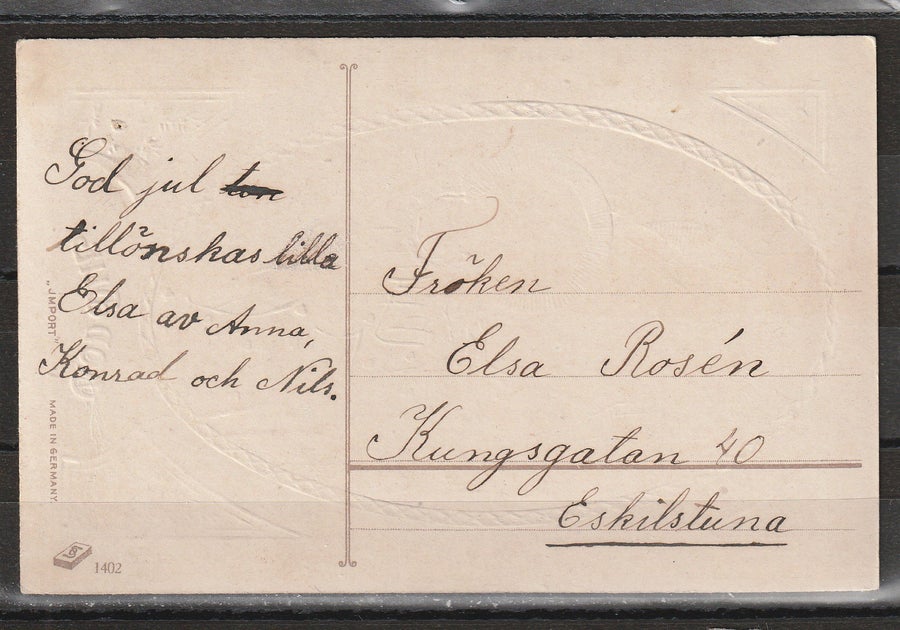 God jul
tillönskas lilla
Elsa av Anna,
Konrad och Nils.
"JMPORT"
MADE IN GERMANY.
1402
Fröken
Elsa Rosén
Kungsgatan 40
Eskilstuna